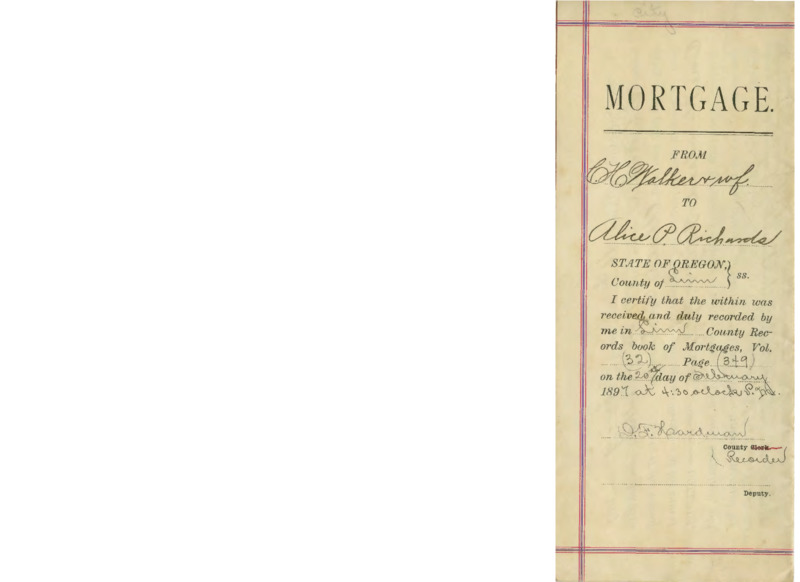 MORTGAGE.
FROM
C H Walker & wf.
TO
Alice P. Richards
STATE OF OREGON, } ss.
County of Linn
I certify that the within was
received and duly recorded by
me in Linn County Rec-
ords book of Mortgages, Vol.
(32) Page (349)
on the 20th day of February
1897 at 4:30 oclock P.M.
Hardman
County Clerk.
(Recorder)
Deputy.